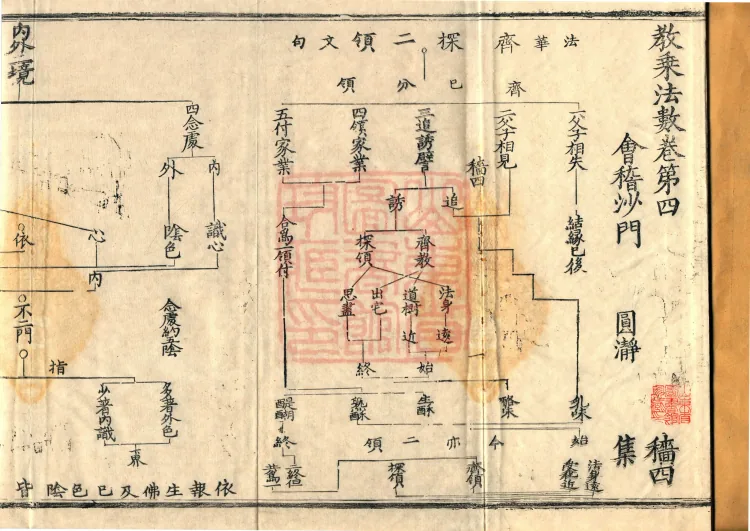 教乘法數卷第四
會稽沙門 圓瀞 集
穡四
法華齊探二領文句
齊領分已
一父子相失
結緣已後
二父子相見
穡四
三追誘譬
四領家業
五付家業
追
誘
齊教
探領
合為一領付
法身遠
道樹近
出宅
思盡
始
終
乳味
酪味
生酥
熟酥
醍醐
今亦二領
始
終
法身遠
齊領
探領
內外二境
四念處
內
外
識心
陰色
心
內
依
不二門
念處約五陰
指
多著外色
少著內識
界
依報生佛及已色陰皆